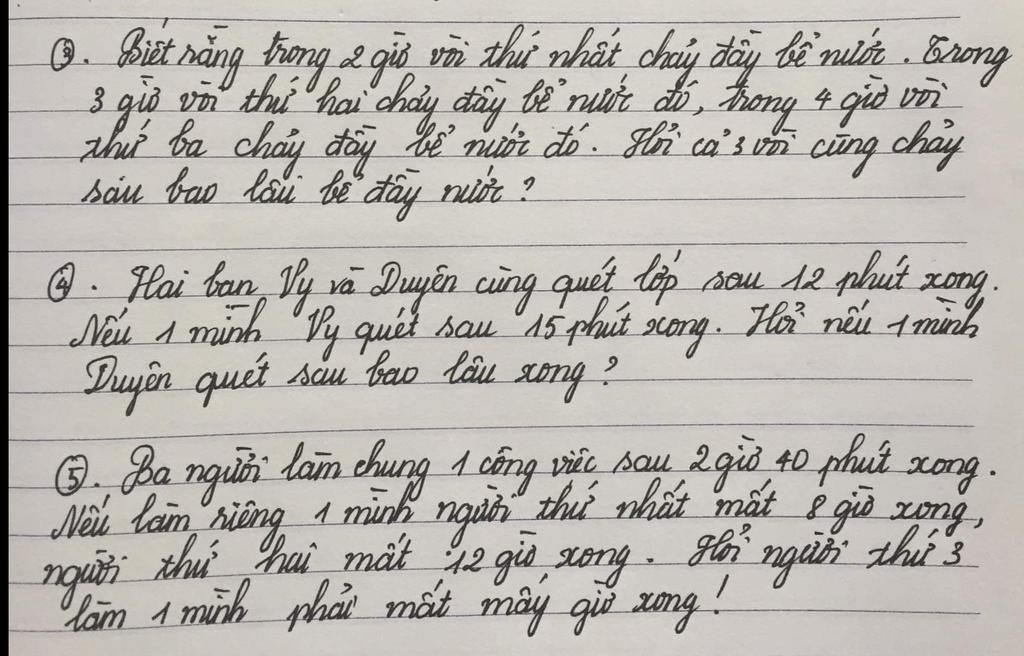 ③. Biết rằng trong 2 giờ vòi thứ nhất chảy đầy bể nước. Trong
3 giờ vòi thứ hai chảy đầy bể nước đó, trong 4 giờ vòi
thứ ba chảy đầy bể nước đó. Hỏi cả 3 vòi cùng chảy
sau bao lâu bể đầy nước?
④. Hai bạn Vy và Duyên cùng quét lớp sau 12 phút xong.
Nếu 1 mình Vy quét sau 15 phút xong. Hỏi nếu 1 mình
Duyên quét sau bao lâu xong?
⑤. Ba người làm chung 1 công việc sau 2 giờ 40 phút xong.
Nếu làm riêng 1 mình người thứ nhất mất 8 giờ xong,
người thứ hai mất 12 giờ xong. Hỏi người thứ 3
làm 1 mình phải mất mấy giờ xong!